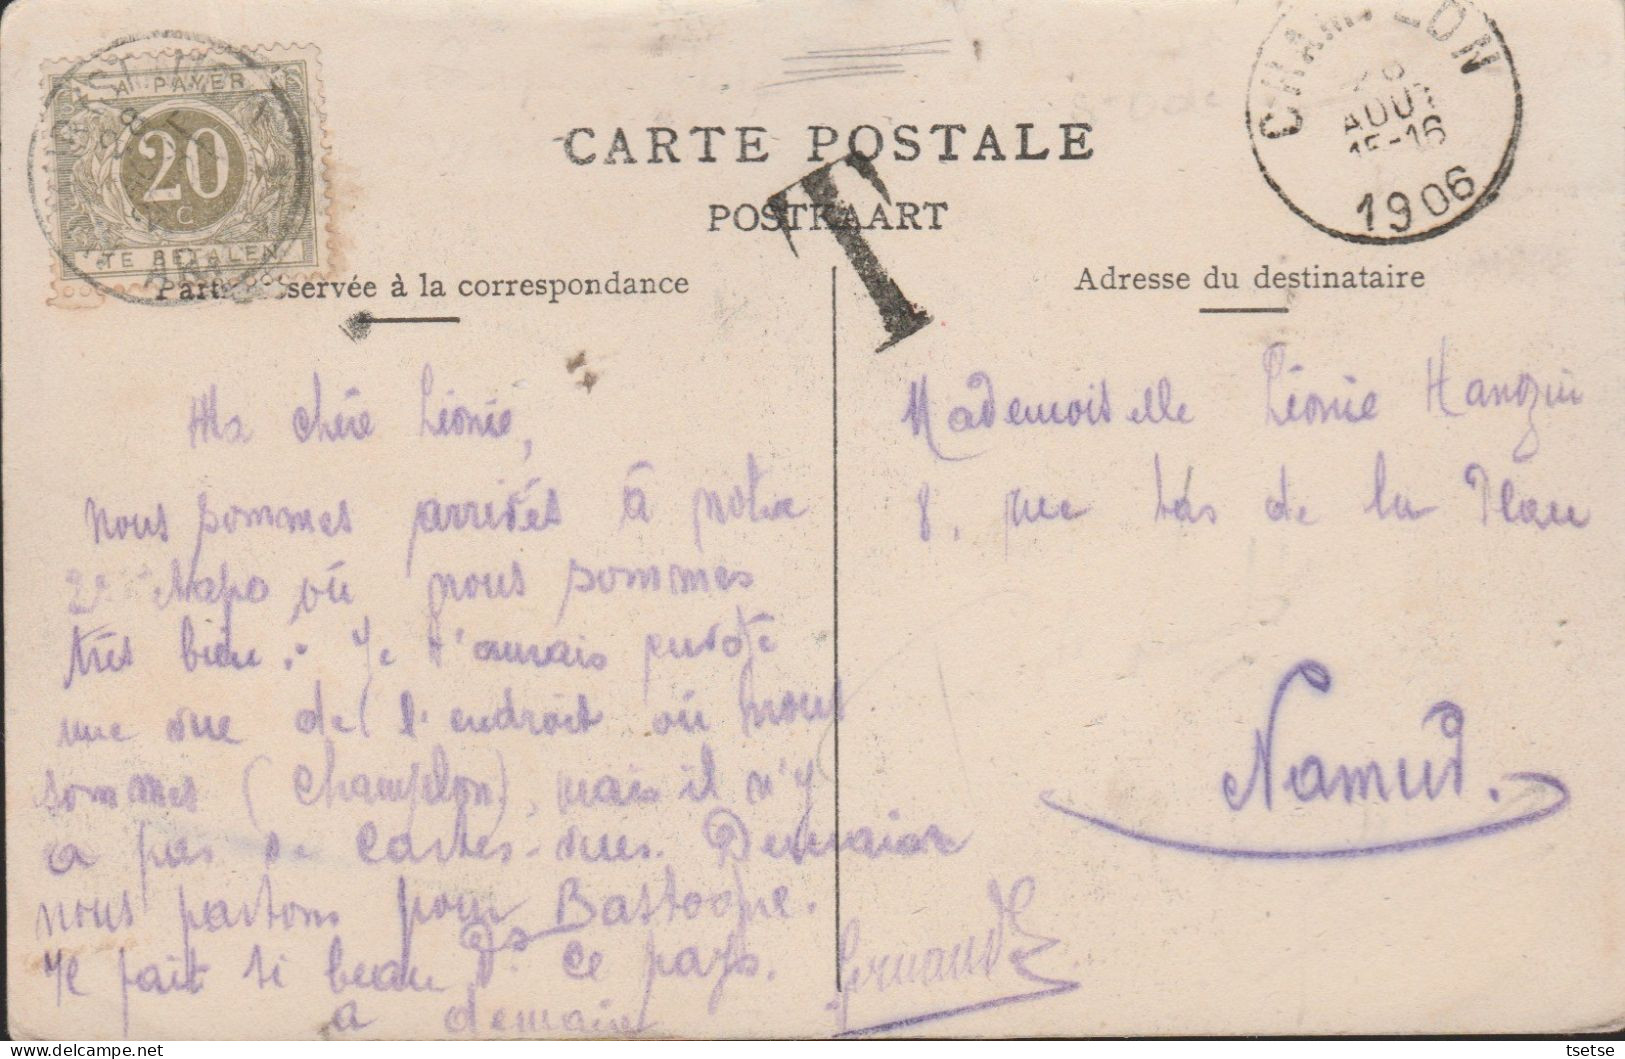 A PAYER
20
C
TE BETALEN
CHAMPLON
28
AOUT
15-16
1906
CARTE POSTALE
POSTKAART
T
Partie réservée à la correspondance
Adresse du destinataire
Ma chère Léonie,
nous sommes arrivés à notre
2e étape où nous sommes
très bien. Je t'aurais envoyé
une vue de l'endroit où nous
sommes (Champlon), mais il n'y
a pas de cartes-vues. Demain
nous partons pour Bastogne.
Il fait si beau ds. ce pays.
à demain
Fernande
Mademoiselle Léonie Hanozin
8, rue bas de la Place
Namur.
tsetse